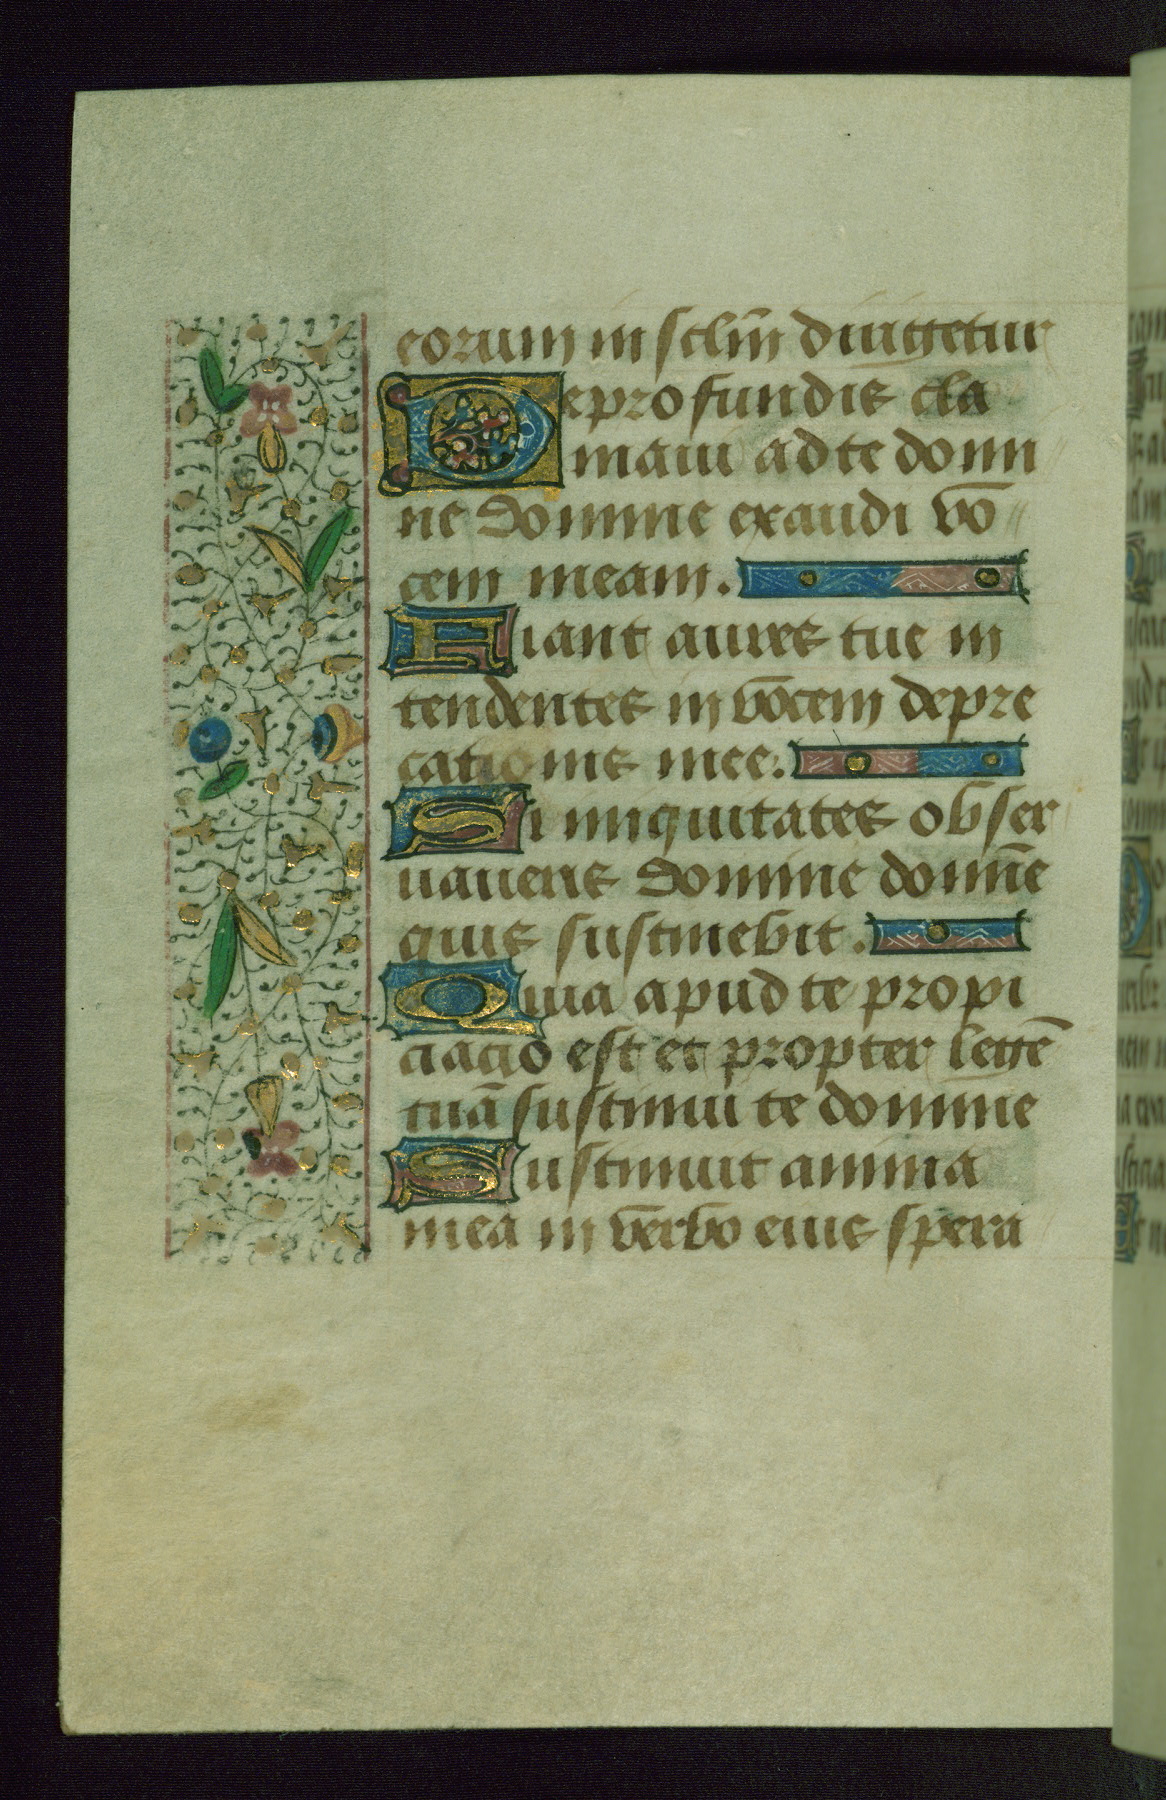 eorum in sclm̄ dirigetur
De profundis cla
maui ad te domi
ne Domine exaudi vo
cem meam.
Fiant aures tue in
tendentes in vocem depre
cationis mee.
Si iniquitates obser
uaueris Domine domīe
quis sustinebit.
Quia apud te propi
ciacio est et propter legē
tuā sustinui te domine
Sustinuit anima
mea in verbo eius spera